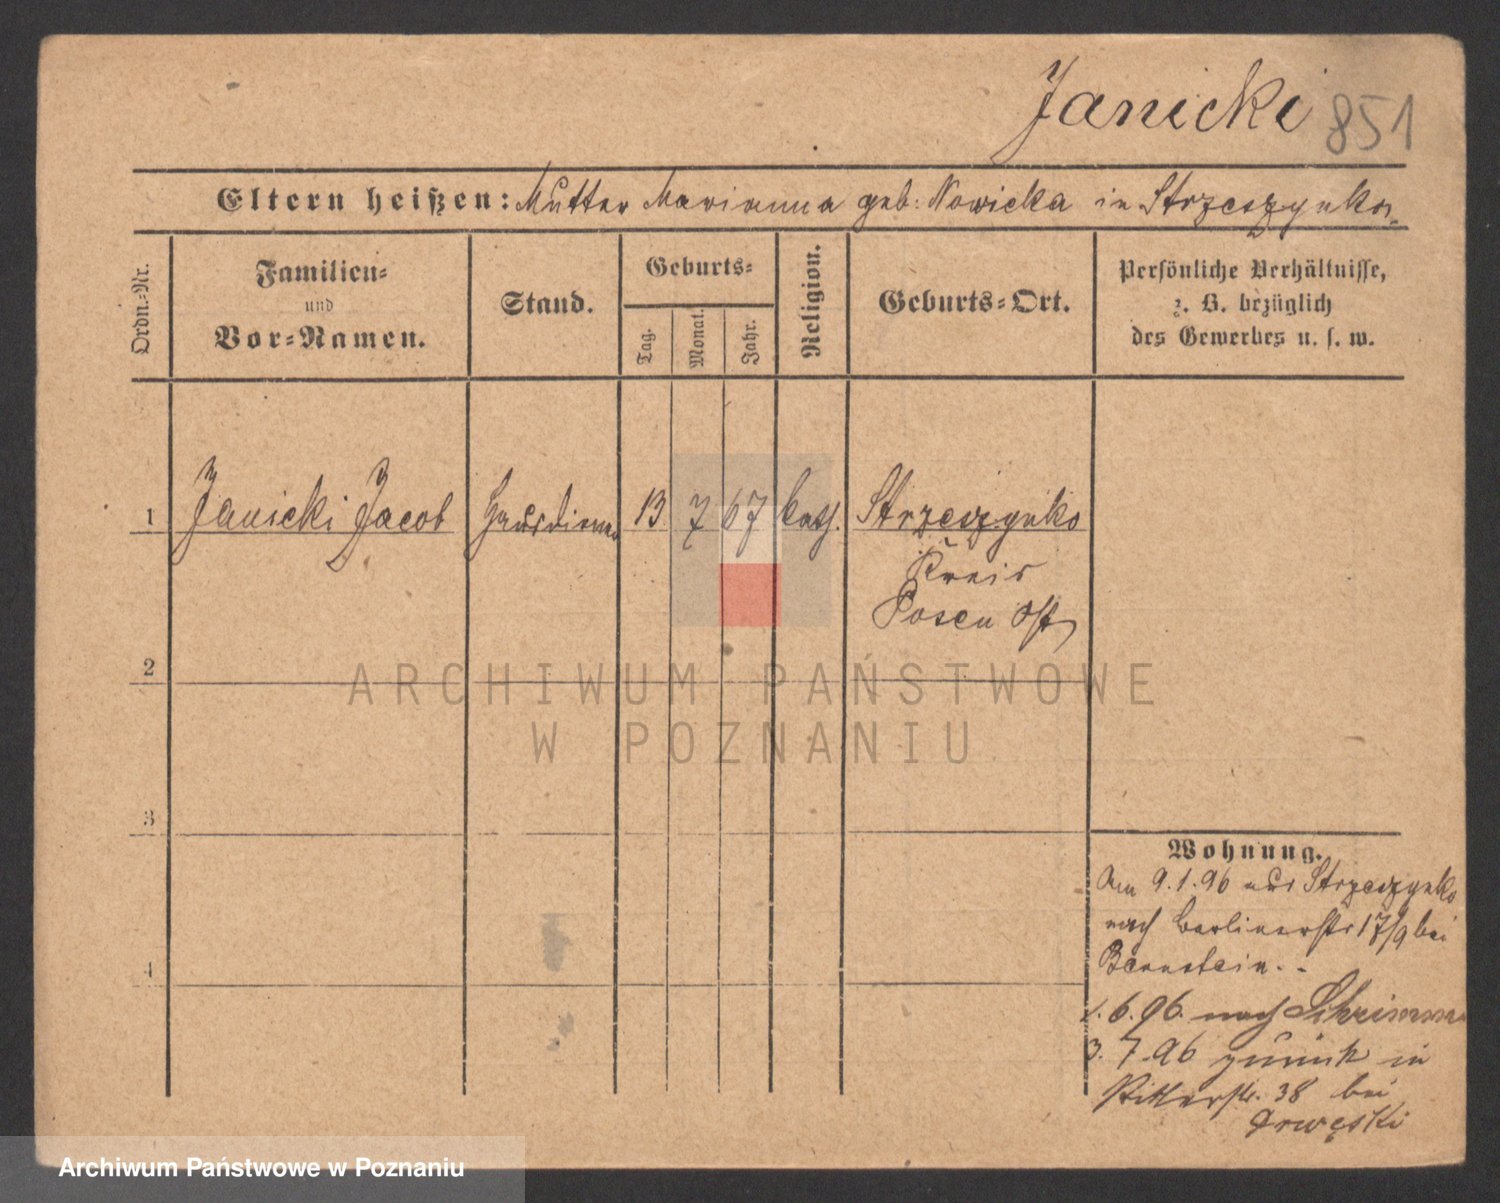 Janicki 851
Eltern heißen: Mutter Marianna geb. Nowicka in Strzeszynko.
Ordn.-Nr.
Familien-
und
Vor-Namen.
Stand.
Geburts-
Tag.
Monat.
Jahr.
Religion.
Geburts-Ort.
Persönliche Verhältnisse,
z. B. bezüglich
des Gewerbes u. s. w.
1 Janicki Jacob Hausdiener 13 7 67 kath. Strzeszynko
Kreis
Posen Ost
2
3
4
Wohnung.
Am 9.1.96 aus Strzeszynko
nach Berlinerstr 17/9 bei
Bernstein.
1.6.96. nach Schrimm
3.7.96 zurück in
Ritterstr. 38 bei
Drwęski
ARCHIWUM PAŃSTWOWE
W POZNANIU
Archiwum Państwowe w Poznaniu